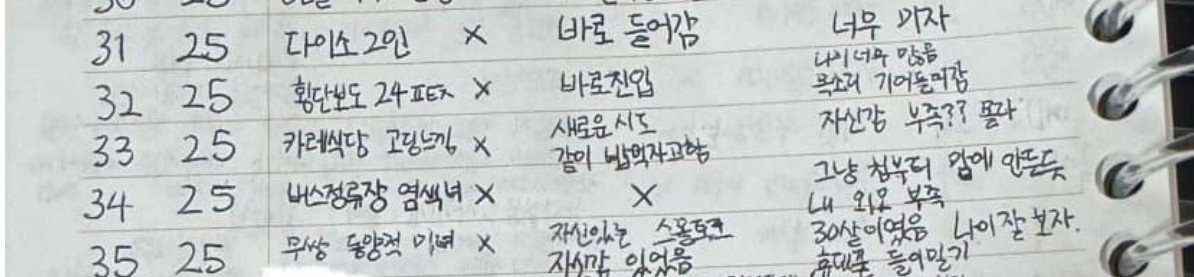 31 25 다이소2인 × 바로 들어감 너무 기자
32 25 횡단보도 24 × 바로진입 나이너무 많음
목소리 기어들어감
33 25 카레식당 고딩느낌 × 새로운시도
같이 밥먹자고함 자신감 부족?? 몰다
34 25 버스정류장 염색녀 × × 그냥 첨부터 맘에 안든듯
내 외모 부족
35 25 무쌍 동양적 미녀 × 자신있는 스몰토크
자신감 있었음 30살이었음 나이잘보자.
휴대폰 들이밀기